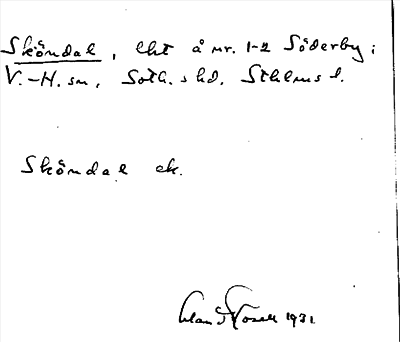 Sköndal, lht å nr. 1-2 Söderby i
V.-H. sn, Soth. shd. Sthlms l.
Sköndal ek.
1931